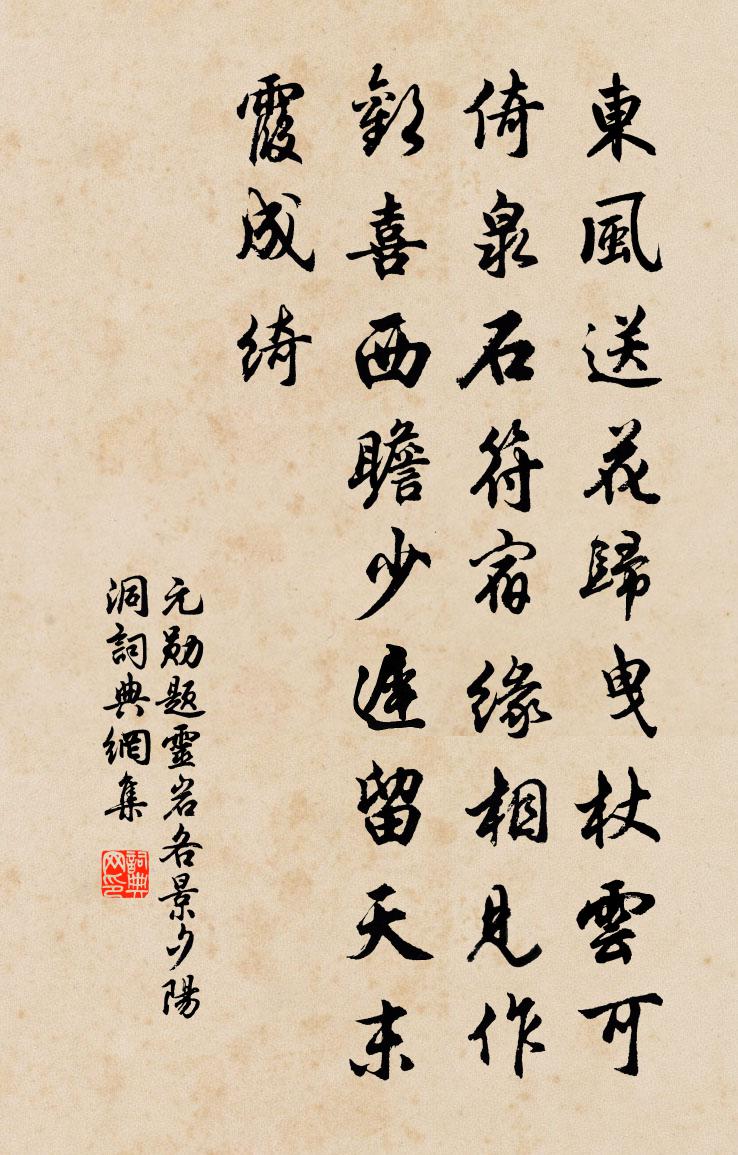 東風送花歸曳杖雲可
倚泉石符宿緣相見作
歡喜西瞻少遲留天末
霞成綺
元勛題靈岩各景夕陽
洞詞典網集
詞典
网印